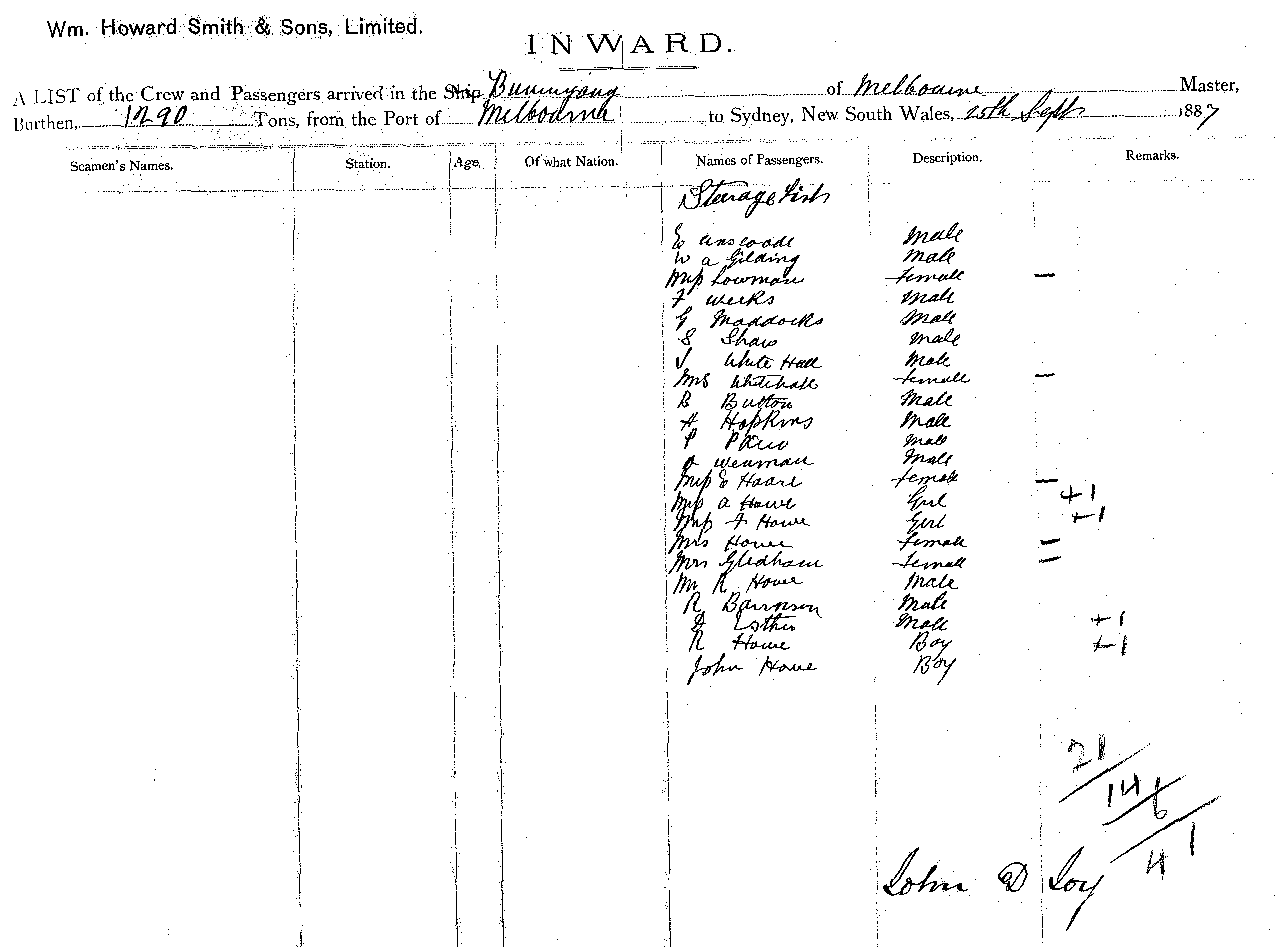 Wm. Howard Smith & Sons, Limited.
INWARD.
A LIST of the Crew and Passengers arrived in the Ship Buninyong of Melbourne Master,
Burthen, 1290 Tons, from the Port of Melbourne to Sydney, New South Wales, Sept 1887
Seamen's Names. Station. Age. Of what Nation. Names of Passengers. Description. Remarks.
Steerage List
E Male
W a Gilding Male
Miss Lowman Female —
F Weeks Male
G Maddocks Male
S Shaw Male
J White Hall Male
Mrs Whitehall Female —
B Button Male
A Hopkins Male
P Male
Wenman Male
Miss E Hoare Female —
Miss a Howe Girl +1
Miss F Howe Girl +1
Mrs Howe Female —
Mrs Gledham Female —
Mr R Howe Male
R Male
Esther Male +1
R Howe Boy +1
John Howe Boy
21
14 6
4 1
John D Loy